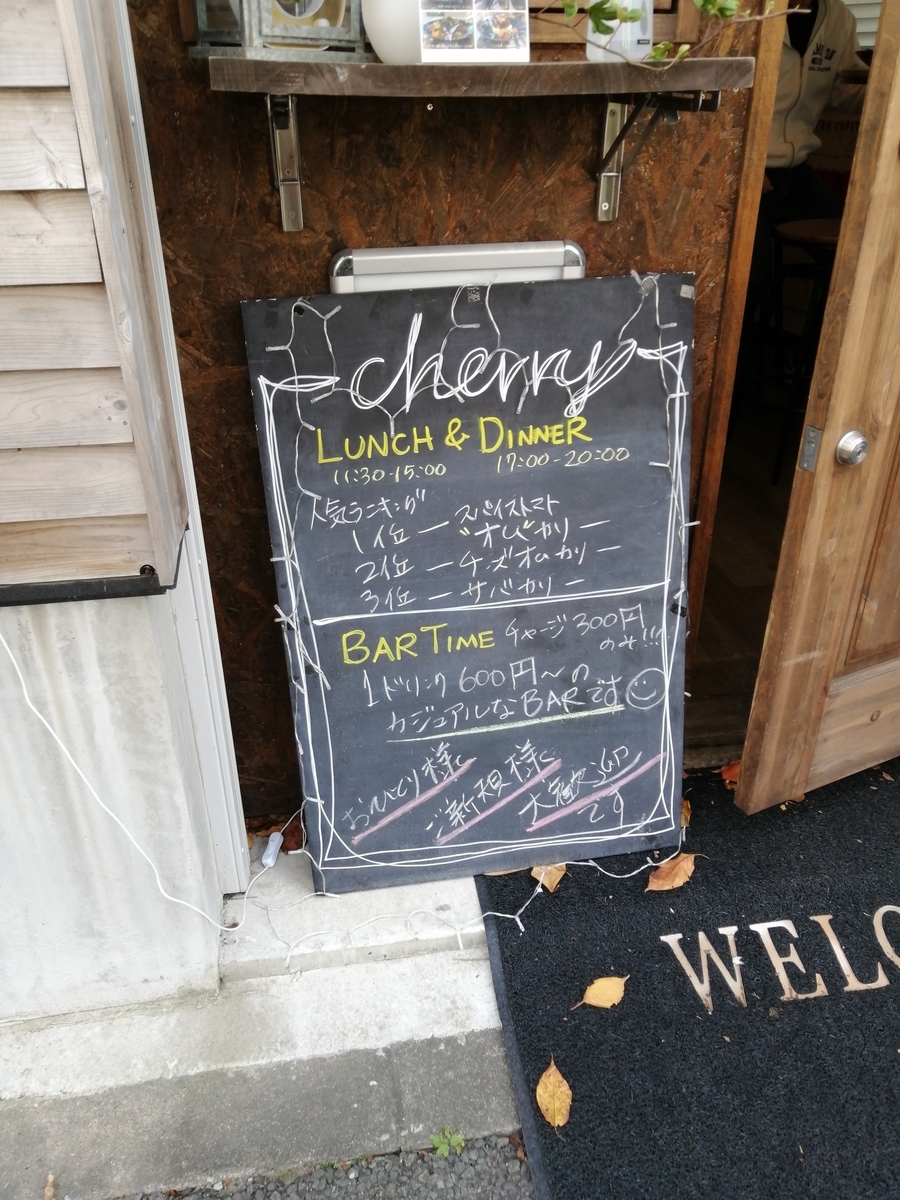 cherry
LUNCH & DINNER
11:30-15:00 17:00-20:00
人気ランキング
スパイストマト
1位 ー "オム"カリー
2位 ー チーズオムカリー
3位 ー サバカリー
BAR TIME チャージ 300円
のみ!!!
1ドリンク 600円〜の
カジュアルなBARです
おひとり様〜
ご新規様〜
大歓迎
です
WELCO